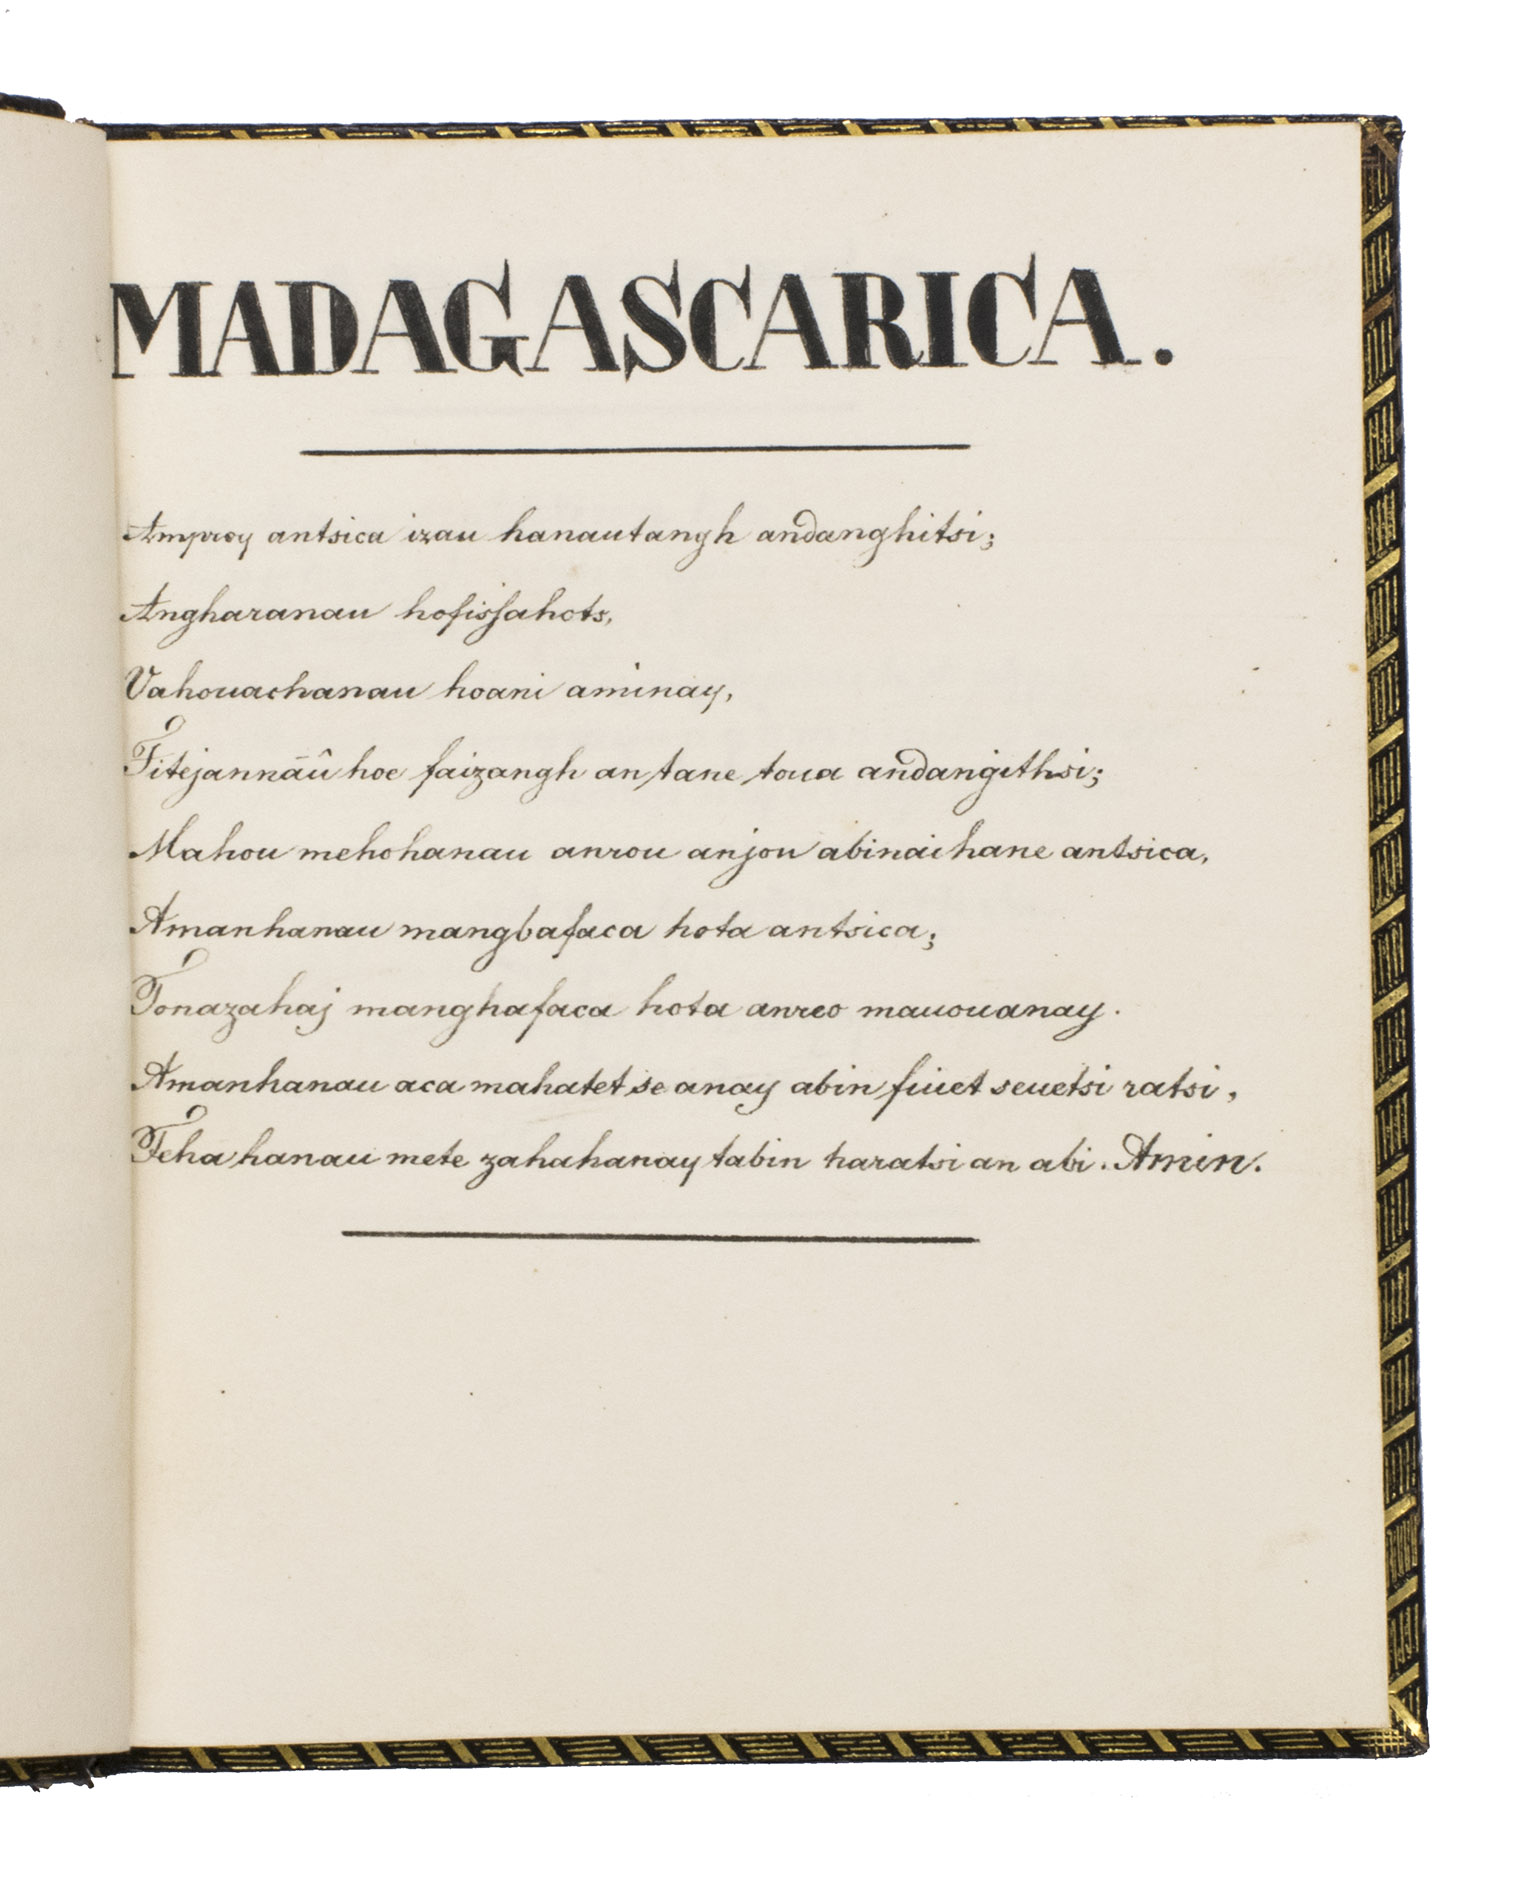 MADAGASCARICA.
Amproy antsica izau hanautangh andanghitsi;
Angharanau hofissahots,
Vahouachanau hoani aminay,
Fitéjannāû hoe faizangh an tane toua andangithsi;
Mahou mehohanau anrou anjou abinaihane antsica,
Amanhanau mangbafaca hota antsica;
Tonazahaj manghafaca hota anreo mauouanay.
Amanhanau aca mahatet se anay abin fiuet seuetsi ratsi,
Feha hanau mete zahahanay tabin haratsi an abi. Amin.